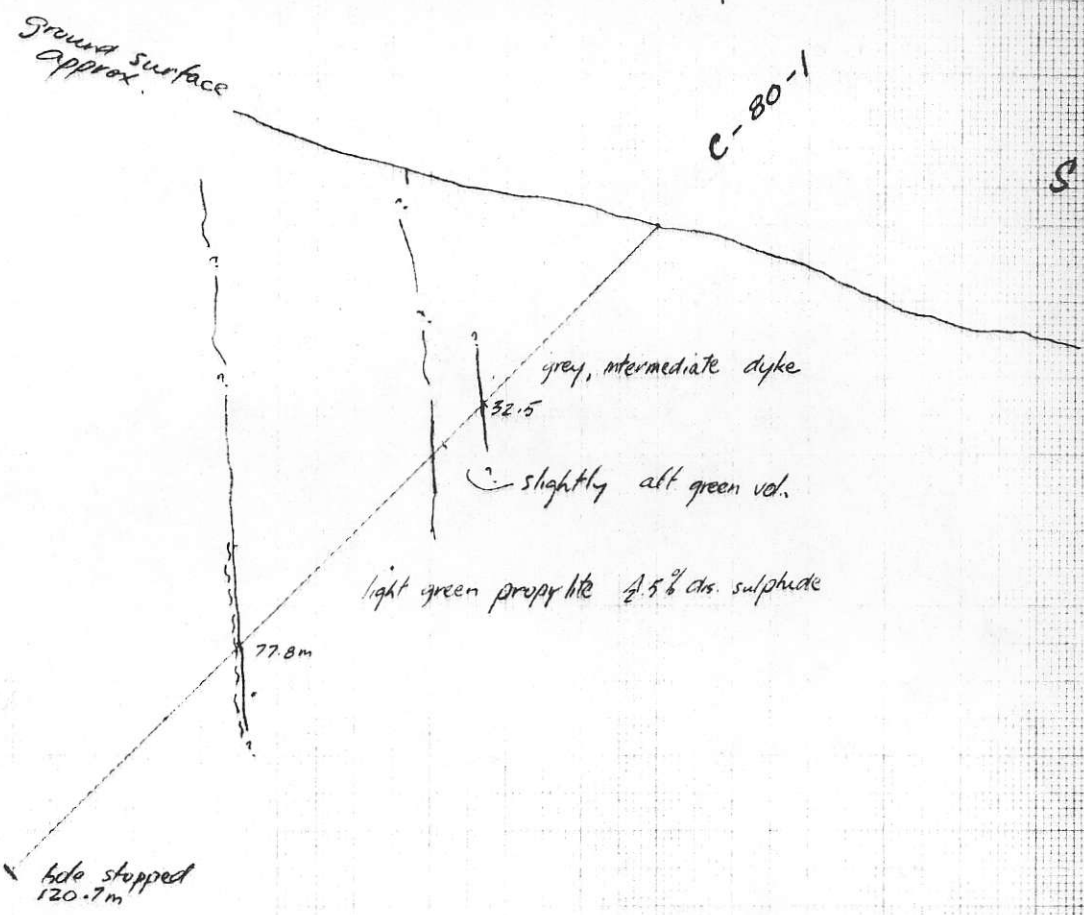 ground surface
approx.
C-80-1
S
?
?
?
?
?
grey, intermediate dyke
32.5
?
slightly alt green vol.
light green propylite % dis. sulphide
77.8m
?
hole stopped
120.7m